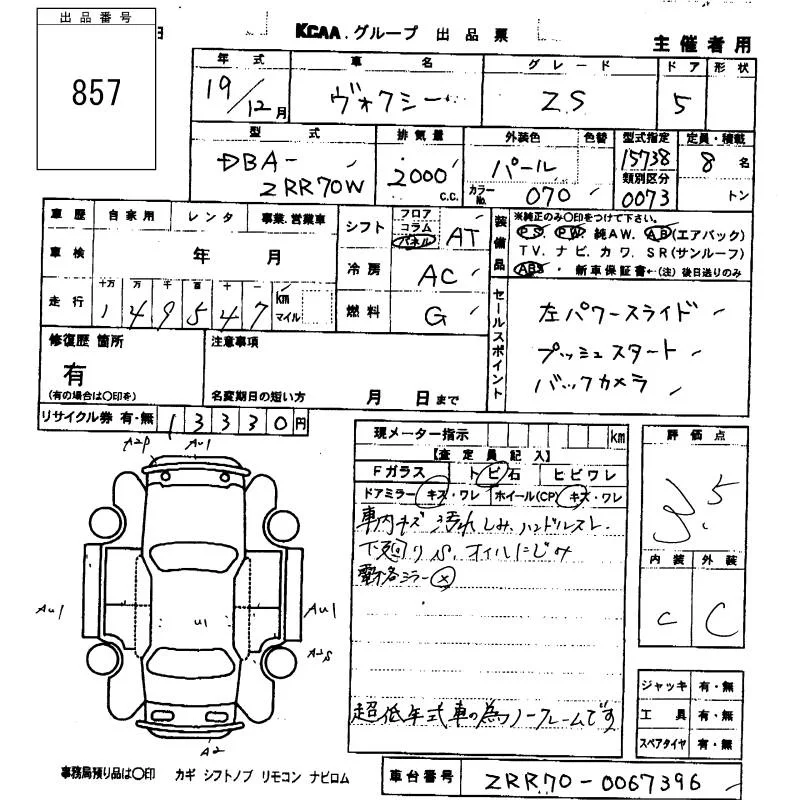 出品番号
857
KCAA.グループ 出品票
主催者用
年式 車名 グレード ドア 形状
19/12月 ヴォクシー ZS 5
型式 排気量 外装色 色替 型式指定 定員・積載
DBA-
ZRR70W
2000 c.c.
パール
カラーNo. 070
15738
類別区分
0073
8 名
トン
車歴 自家用 レンタ 事業.営業車
車検 年 月
走行 十万 万 千 百 十 一
149547 km マイル
シフト フロア コラム パネル AT
冷房 AC
燃料 G
装備品
※純正のみ〇印をつけて下さい。
P.S. P.W. 純AW. AB(エアバッグ)
TV. ナビ. カワ. SR(サンルーフ)
ABS ・ 新車保証書←(注) 後日送りのみ
セールスポイント
左パワースライド
プッシュスタート
バックカメラ
修復歴 箇所
有
(有の場合は〇印を)
注意事項
名変期日の短い方 月 日まで
リサイクル券 有・無 13330円
現メーター指示 km
【査定員記入】
Fガラス トビ石 ヒビワレ
ドアミラー キズ・ワレ ホイール(CP) キズ・ワレ
車内キズ 汚れ しみ、ハンドルスレ、
下廻りS、オイルにじみ
電格ミラー×
超低年式車の為ノークレームです
評価点
3.5
内装 外装
C C
ジャッキ 有・無
工具 有・無
スペアタイヤ 有・無
A2P AU1
AU1 U1 AU1
A2S
A2
事務局預り品は〇印 カギ シフトノブ リモコン ナビロム
車台番号 ZRR70-0067396